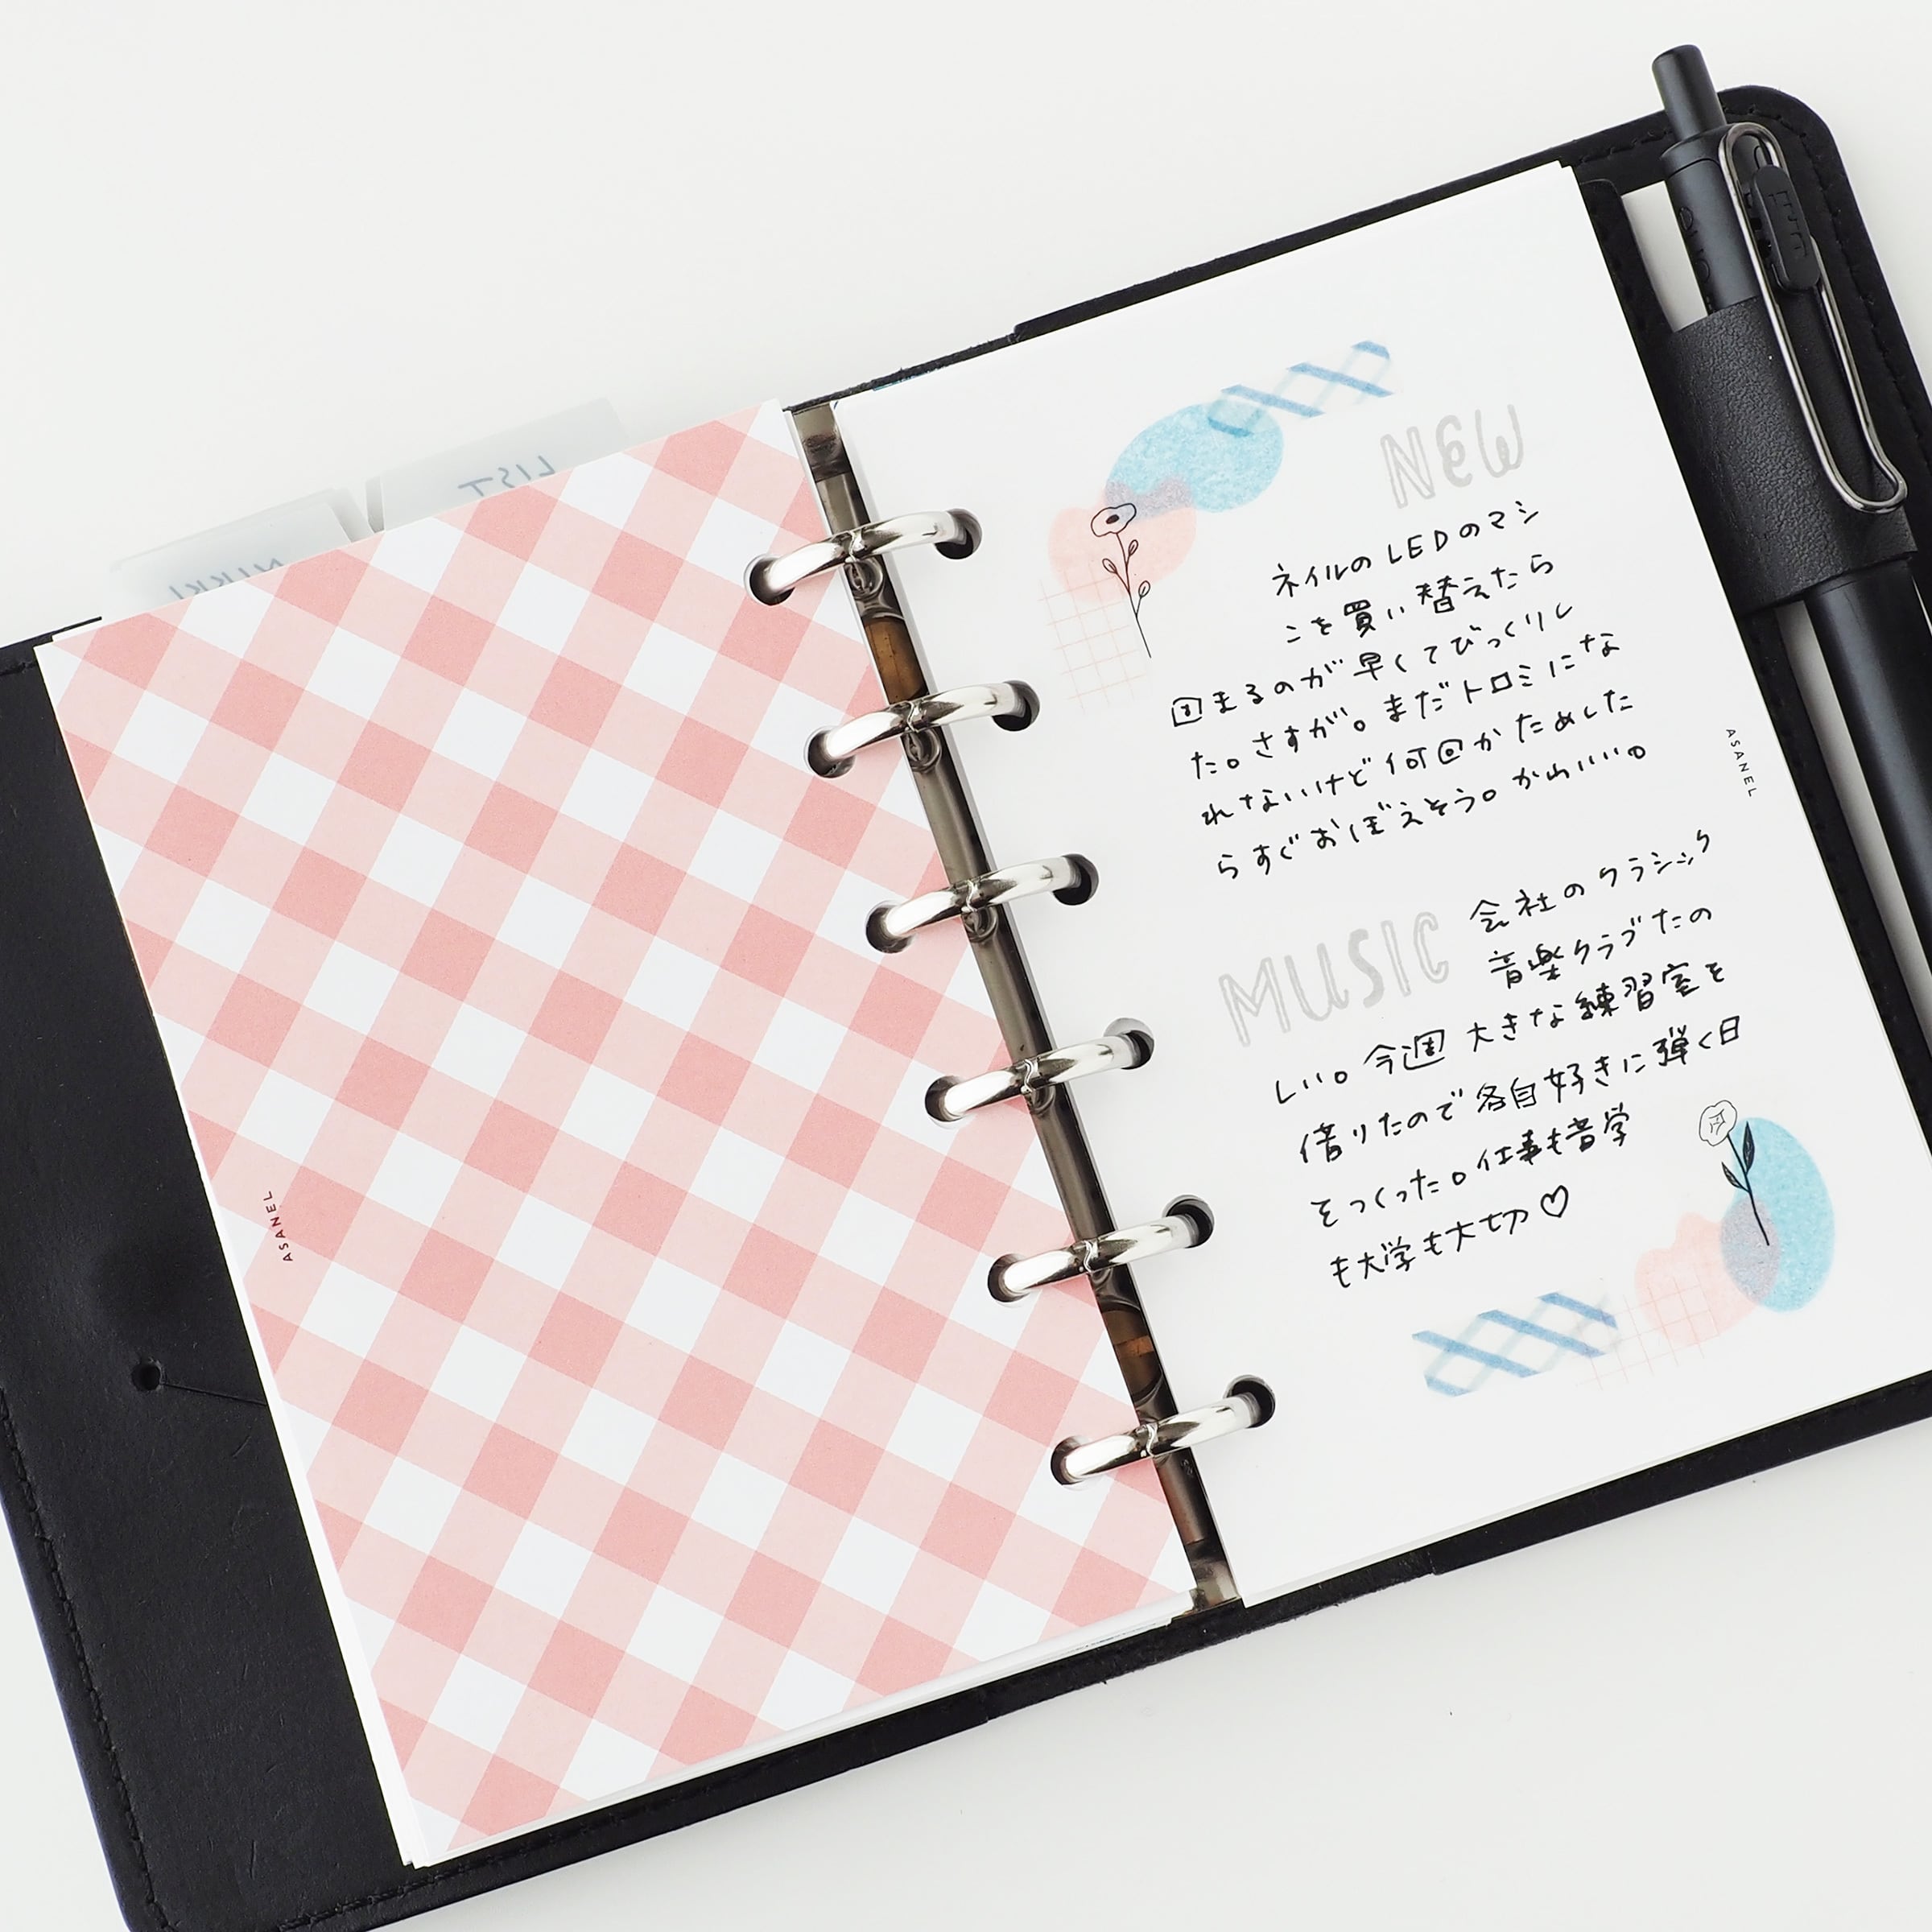 LIST
NIKKI
ASANEL
NEW
ネイルのLEDのマシ
ンを買い替えたら
固まるのが早くてびっくりし
た。さすが。まだトロミにな
れないけど何回かためした
らすぐおぼえそう。かわいい。
MUSIC
会社のクラシック
音楽クラブたの
しい。今週大きな練習室を
借りたので各自好きに弾く日
をつくった。仕事も音学
も大学も大切♡
ASANEL